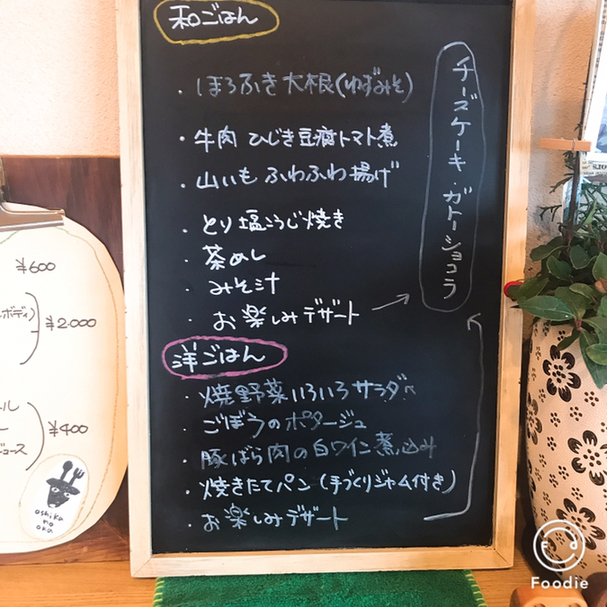 和ごはん
・ほろふき大根(ゆずみそ)
・牛肉 ひじき豆腐トマト煮
・山いも ふわふわ揚げ
・とり塩こうじ焼き
・茶めし
・みそ汁
・お楽しみデザート
チーズケーキ・ガトーショコラ
洋ごはん
・焼野菜いろいろサラダ
・ごぼうのポタージュ
・豚ばら肉の白ワイン煮込み
・焼きたてパン(手づくりジャム付き)
・お楽しみデザート
¥600
ボディ)
¥2.000
ル
ー
ジュース
¥400
oshika
no
oka
Foodie